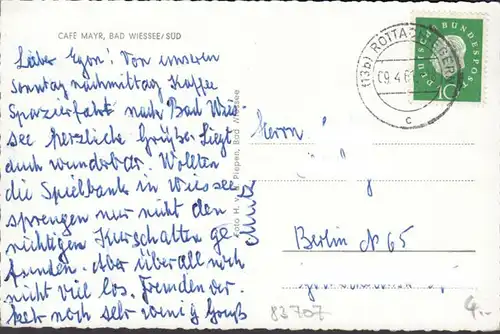 CAFE MAYR, BAD WIESSEE/SÜD
Lieber Egon! Von unseren
Sonntagnachmittag Kaffee
Spazierfahrt nach Bad Wies
see herzliche Grüße. Liegt
auch wunderbar. Wollten
die Spielbank in Wiessee
sprengen nur nicht den
richtigen Kurschatten ge
funden. Aber überall noch
nicht viel los. Fremden ver.
kehr noch sehr wenig Gruß
Mutti
Foto H. Pieppen, Bad Wiessee
(13b) ROTTACH-EGERN
09.4.6
c
DEUTSCHE BUNDESPOST
10
Herrn
Berlin N 65
83707
4.-